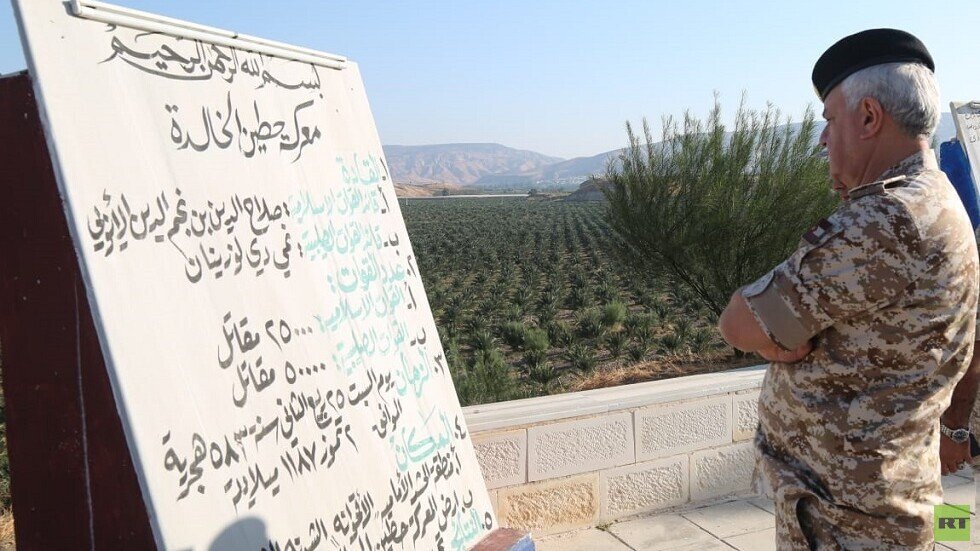 بسم الله الرحمن الرحيم
معركة حطين الخالدة
١. القادة
أ. قائد القوات الاسلامية: صلاح الدين بن نجم الدين الأيوبي
ب. قائد القوات الصليبية: غي دي لوزينان
٢. عدد القوات:
أ. القوات الاسلامية ٢٥٠٠٠ مقاتل
ب. القوات الصليبية ٥٠٠٠٠ مقاتل
٣. الزمان يوم السبت ٢٥ ربيع الثاني سنة ٥٨٣ هجرية
الموافق ٤ تموز ١١٨٧ ميلادية
٤. المكان
أ. منطقة الأقحوانة
ب. أرض المعركة حطين
٥. النتائج
RT